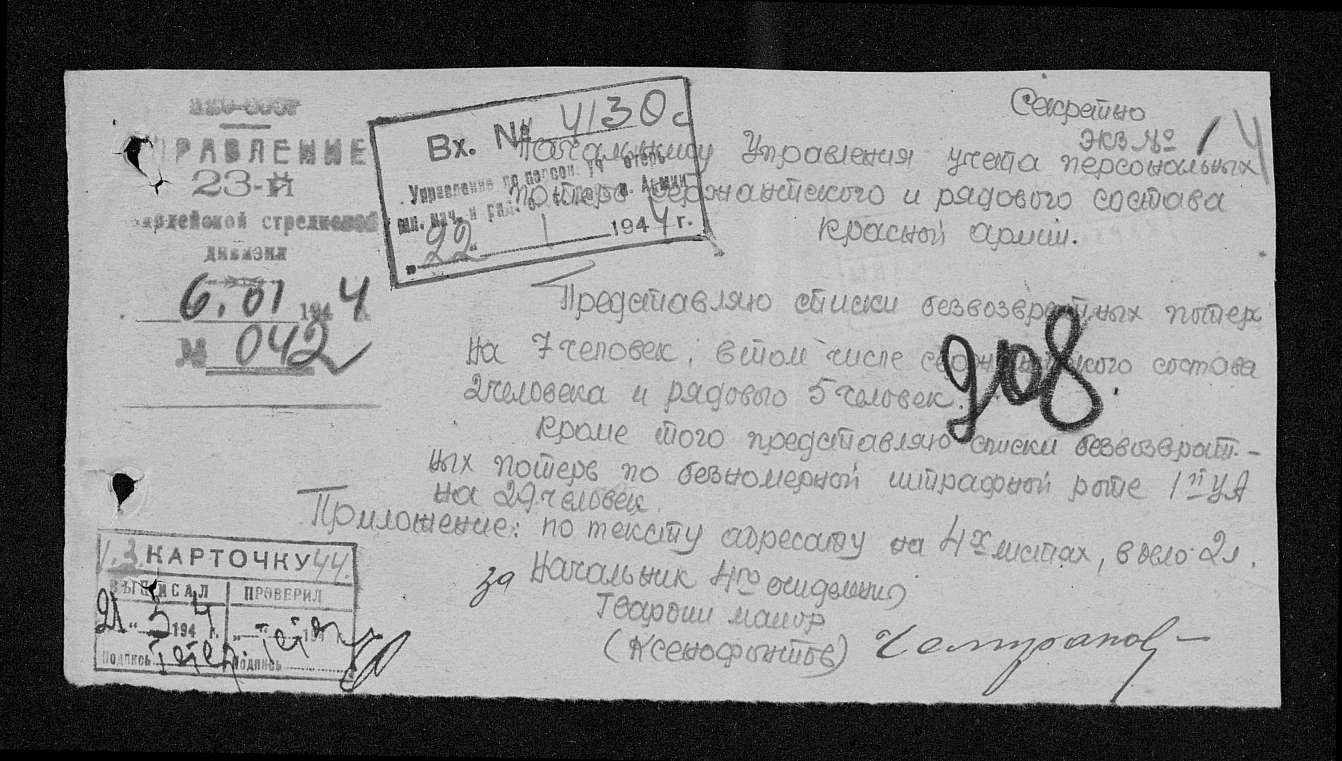 УПРАВЛЕНИЕ
23-й
гвардейской стрелковой
дивизии
6.01 1944
№ 042
Вх. № 4130с
Управление по персон.
22 1944 г.
Секретно
экз № 1
Начальнику Управления учета персональных
потерь сержантского и рядового состава
Красной армии.
Представляю списки безвозвратных потерь
на 7 человек, в том числе сержантского состава
2 человека и рядового 5 человек.
Кроме того представляю списки безвозврат-
ных потерь по безномерной штрафной роте 1й УА
на 29 человек.
Приложение: по тексту адресату на 4х листах, в дело 2л.
за Начальник 4го отделения
Гвардии майор
(Ксенофонтов)
908
1.3. КАРТОЧКУ 44.
ВЫПИСАЛ ПРОВЕРИЛ
21 " 3 1944 г.
Подпись Подпись